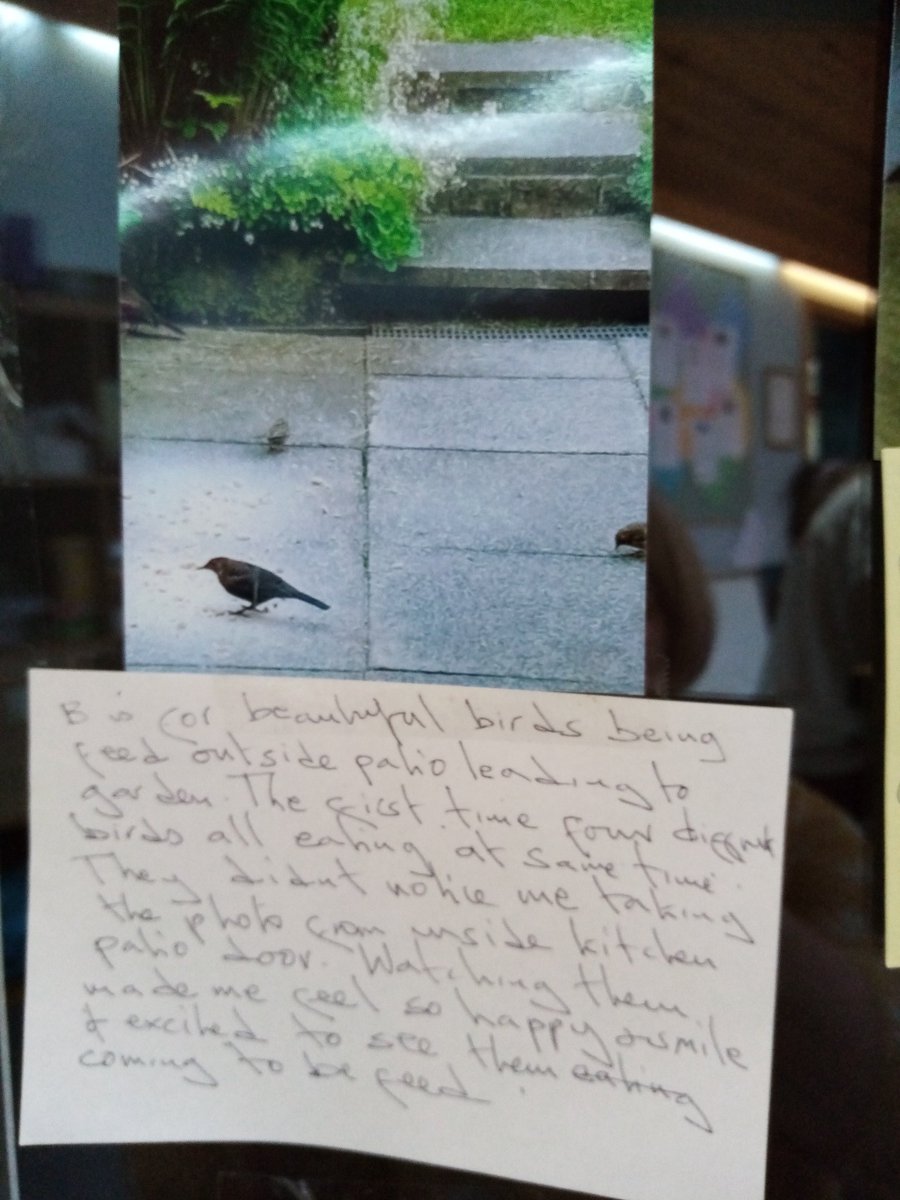 B is for beautiful birds being
feed outside patio leading to
garden. The first time four diffrent
birds all eating at same time.
They didnt notice me taking
the photo from inside kitchen
patio door. Watching them
made me feel so happy & smile
& excited to see them eating
coming to be feed.